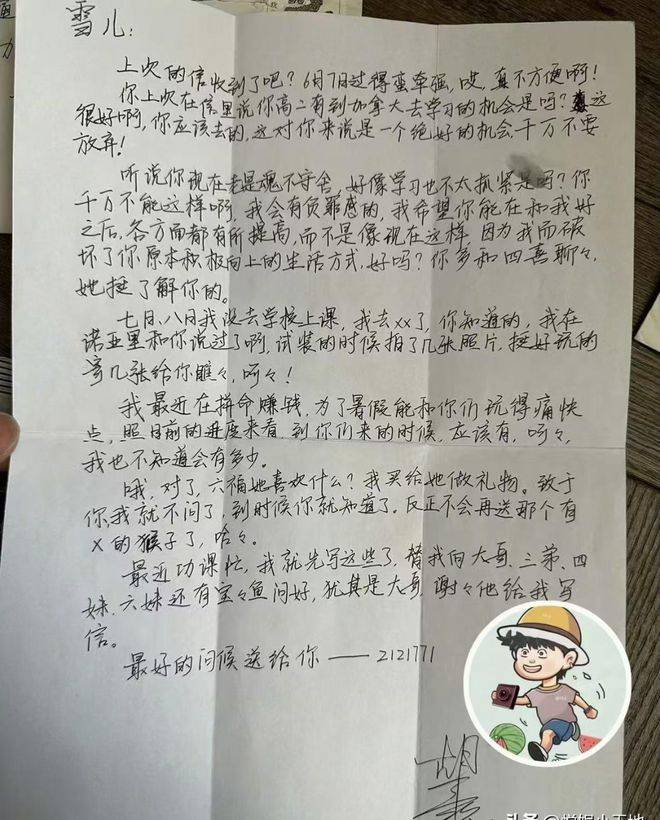 雪儿:
上次的信收到了吧?6月7日过得蛮牵强,哎,真不方便啊!
你上次在信里说你高二有到加拿大去学习的机会是吗?这
很好啊,你应该去的,这对你来说是一个绝好的机会千万不要
放弃!
听说你现在老是魂不守舍,好像学习也不太抓紧是吗?你
千万不能这样啊,我会有负罪感的,我希望你能在和我好
之后,各方面都有所提高,而不是像现在这样 因为我而破
坏了你原本积极向上的生活方式,好吗?你多和四喜聊々,
她挺了解你的。
七日、八日我没去学校上课,我去xx了,你知道的,我在
诺亚里和你说过了啊,试装的时候拍了几张照片,挺好玩的
寄几张给你瞧々,呵々!
我最近在拼命赚钱,为了暑假能和你们玩得痛快
点,照目前的进度来看,到你们来的时候,应该有,呵々,
我也不知道会有多少。
哦,对了,六福她喜欢什么?我买给她做礼物。致于
你,我就不问了,到时候你就知道了。反正不会再送那个有
x的猴子了,哈々。
最近功课忙,我就先写这些了,替我向大哥、三弟、四
妹、六妹还有宝々鱼问好,犹其是大哥,谢々他给我写
信。
最好的问候送给你——2121771
胡
头条@